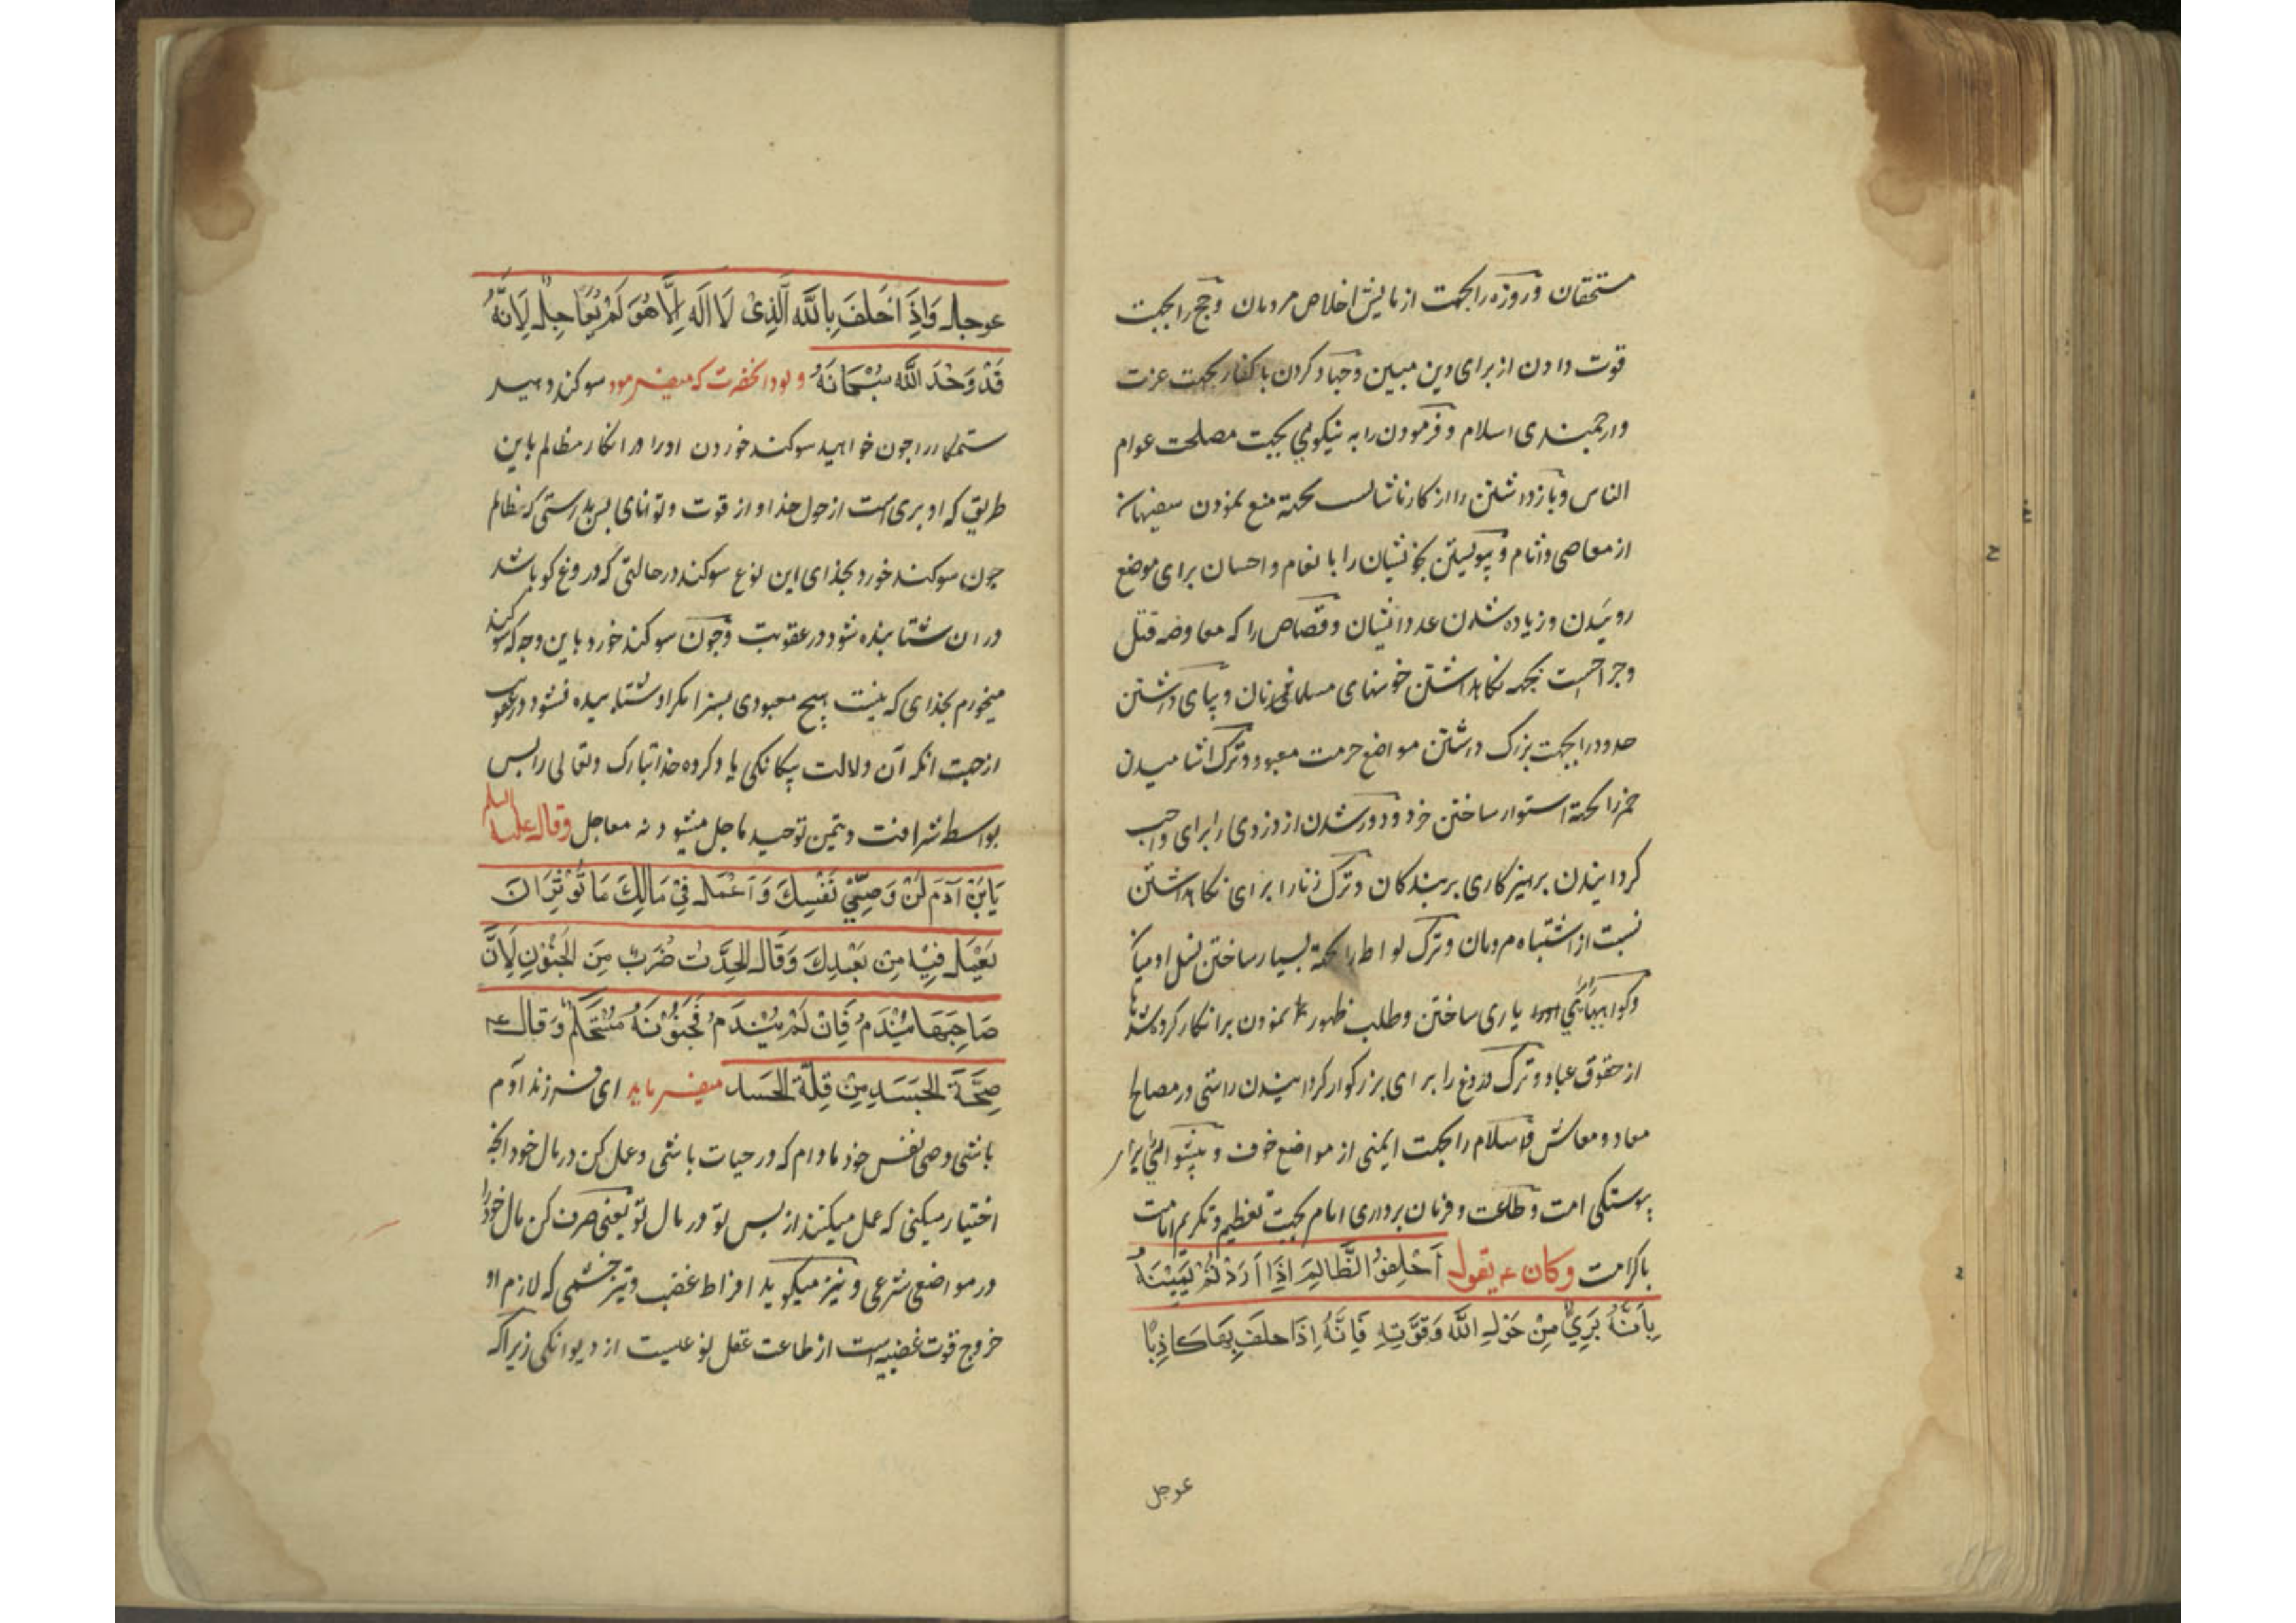 مستحقان و روزه را بجهت ازمایش اخلاص مردمان و حج را بجهت
قوت دادن از برای دین مبین و جهاد کردن با کفار بجهت عزت
وارجمندی اسلام و فرمودن را به نیکویی بجهت مصلحت عوام
الناس و بازداشتن را از کار ناشایست بجهة منع نمودن سفیهان
از معاصی و اثام و پیوستن بخویشان را با نعام و احسان برای موضع
روئیدن و زیاده شدن عدد ایشان و قصاص را که معاوضه قتل
و جراحتست بجهة نکاهداشتن خونهای مسلمانان و بپای داشتن
حدود را بجهت بزرک داشتن مواضع حرمت معبود و ترک اشامیدن
خمر را بجهة استوار ساختن خرد و دور شدن از دزدی را برای واجب
کردانیدن پرهیزکاری بر بندکان و ترک زنا را برای نکاهداشتن
نسبت از اشتباه مردمان و ترک لواط را بجهة بسیار ساختن نسل ادمیان
و کواهیها یاری ساختن و طلب ظهور نمودن بر انکار کرده شدها
از حقوق عباد و ترک دروغ را برای بزرکوار کردانیدن راستی در مصالح
معاد و معاش و اسلام را بجهت ایمنی از مواضع خوف و پیشوائی را برای
پیوستکی امت و طاعت و فرمان برداری امام بجهت تعظیم و تکریم امامت
باکرامت وکان ع یقول اَحْلِفُوا الظَّالِمَ اِذَا اَرَدْتُمْ یَمِیْنَهُ
بِاَنَّهُ بَرِیٌّ مِنْ حَوْلِ اللّٰهِ وَقُوَّتِهِ فَاِنَّهُ اِذَا حلَفَ بِهَا کَاذِبًا
عوجل
عوجل وَاِذَا حَلَفَ بِاللّٰهِ الَّذِیْ لَا اِلَهَ اِلَّا هُوَ لَمْ یُعَاجِلْ لِاَنَّهُ
قَدْ وَحَّدَ اللّٰهَ سُبْحَانَهُ و بود انحضرت که میفرمود سوکند دهید
ستمکار را چون خواهید سوکند خوردن او را در انکار مظالم باین
طریق که او بری است از حول خدا و از قوت و توانای پس بدرستی که ظالم
چون سوکند خورد بخدای این نوع سوکند در حالتی که دروغ کو باشد
در ان شتابنده شود در عقوبت و چون سوکند خورد باین وجه که سوکند
میخورم بخدای که نیست هیچ معبودی بسزا مکر او شتابیده نشود در عقوبت
از جهت انکه آن دلالت بیکانکی یاد کرده خدا تبارک و تعالی را پس
بواسطه شرافت و یتمن توحید ماجل میشود نه معاجل وقال علیه السلم
یَابْنَ آدَمَ کُنْ وَصِیَّ نَفْسِكَ وَاَعْمَلْ فِیْ مَالِكَ مَا تُوْثِرُ اَنْ
یَعْمَلَ فِیْهِ مِنْ بَعْدِكَ وَقَالَ الْحِدَّتُ ضَرْبٌ مِنَ الْجُنُوْنِ لِاَنَّ
صَاحِبَهَا یَنْدَمُ فَاِنْ لَمْ یَنْدَمْ فَجُنُوْنُهُ مُسْتَحْکِمٌ وَقال ع
صِحَّةُ الْجَسَدِ مِنْ قِلَّةِ الْحَسَدِ میفرماید ای فرزند آدم
باشی وصی نفس خود مادام که در حیات باشی و عمل کن در مال خود انچه
اختیار میکنی که عمل میکنند از پس تو در مال تو یعنی صرف کن مال خود را
در مواضع شرعی و نیز میکوید افراط غضب و تیز خشمی که لازم او
خروج قوت غضبیه است از طاعت عقل نوعیست از دیوانکی زیراکه